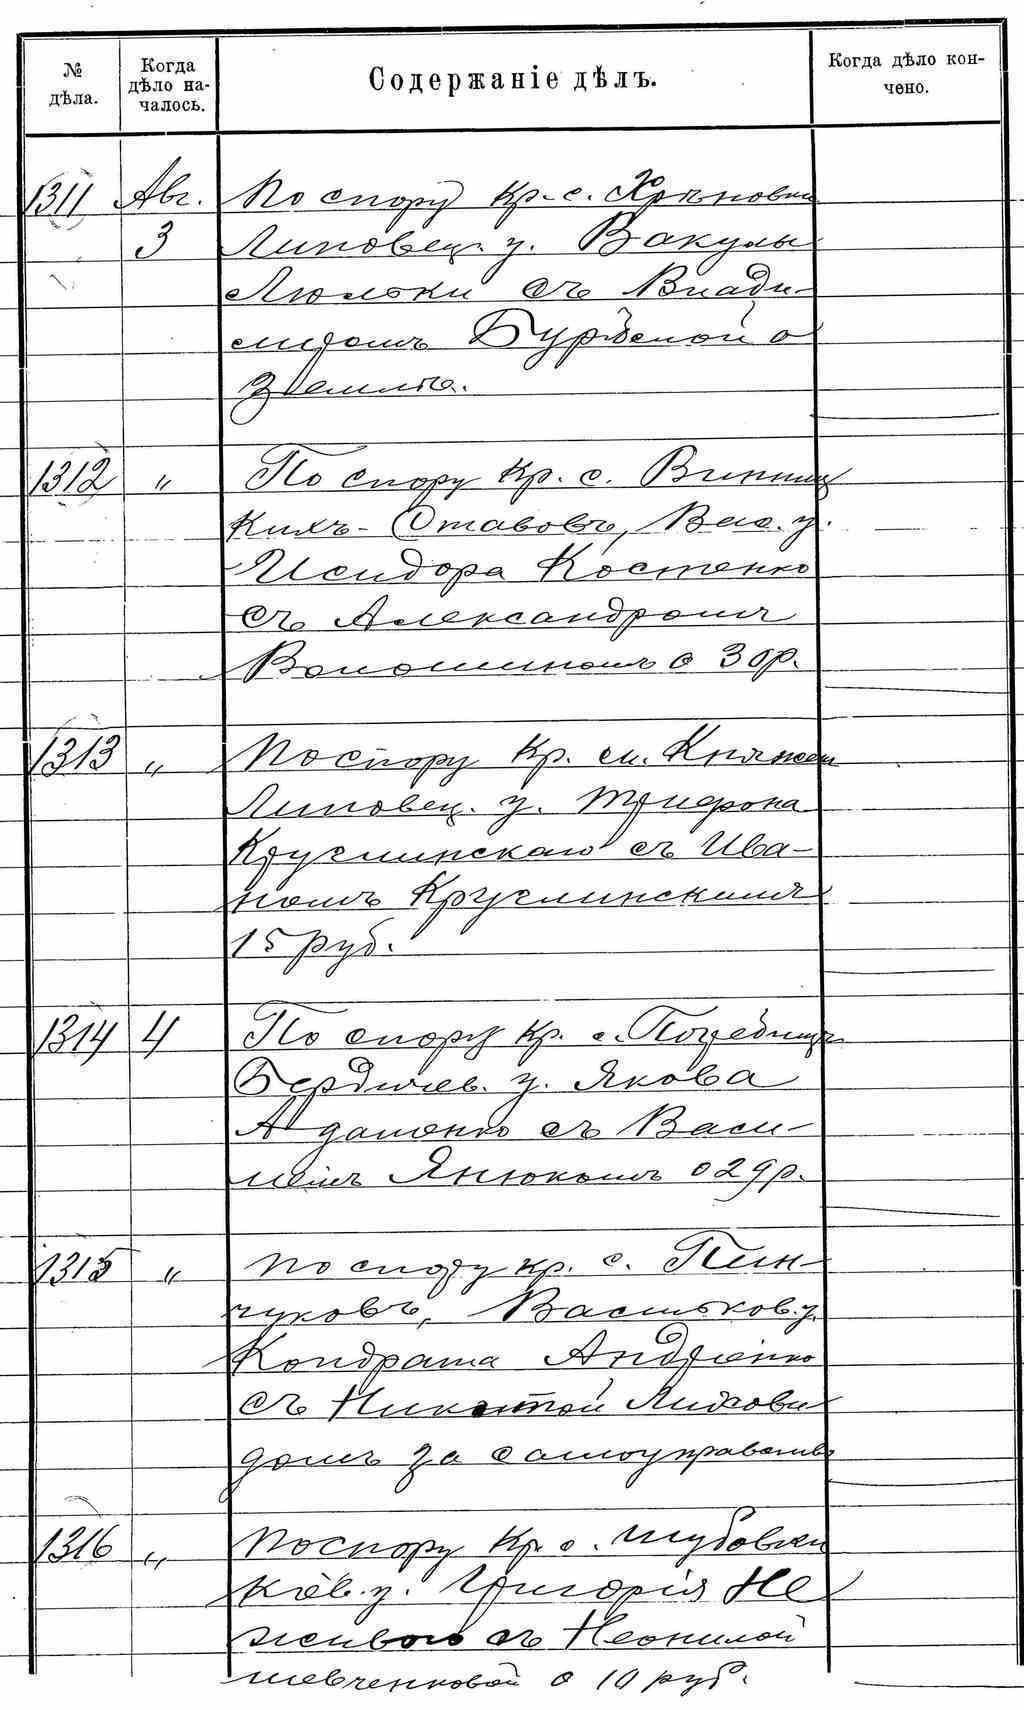 № дѣла.
Когда дѣло началось.
Содержаніе дѣлъ.
Когда дѣло кончено.
1311 Авг. По спору кр. с. Хрѣновки
3 Липовец. у. Вакулы
Люльки съ Влади-
міромъ о
землѣ.
1312 „ По спору кр. с. Винниц
кихъ-Ставовъ, Вас. у.
Исидора Костенко
съ Александромъ
Волошиномъ о 30р.
1313 „ По спору кр. м. Княжей
Липовец. у. Трифона
Круглинскаго съ Ива-
номъ Круглинскимъ
15 руб.
1314 4 По спору кр. с. Погребищъ
Бердичев. у. Якова
Адаменко съ Васи-
лемъ Янюкомъ о 29р.
1315 „ По спору кр. с. Пин-
чуковъ, Васильков. у.
Кондрата Андріенко
съ Никитой Лихови
домъ за самоуправство
1316 „ По спору кр. с. Шубовки
Кіев. у. Григорія Не
живого съ Неонилой
Шевченковой о 10 руб.